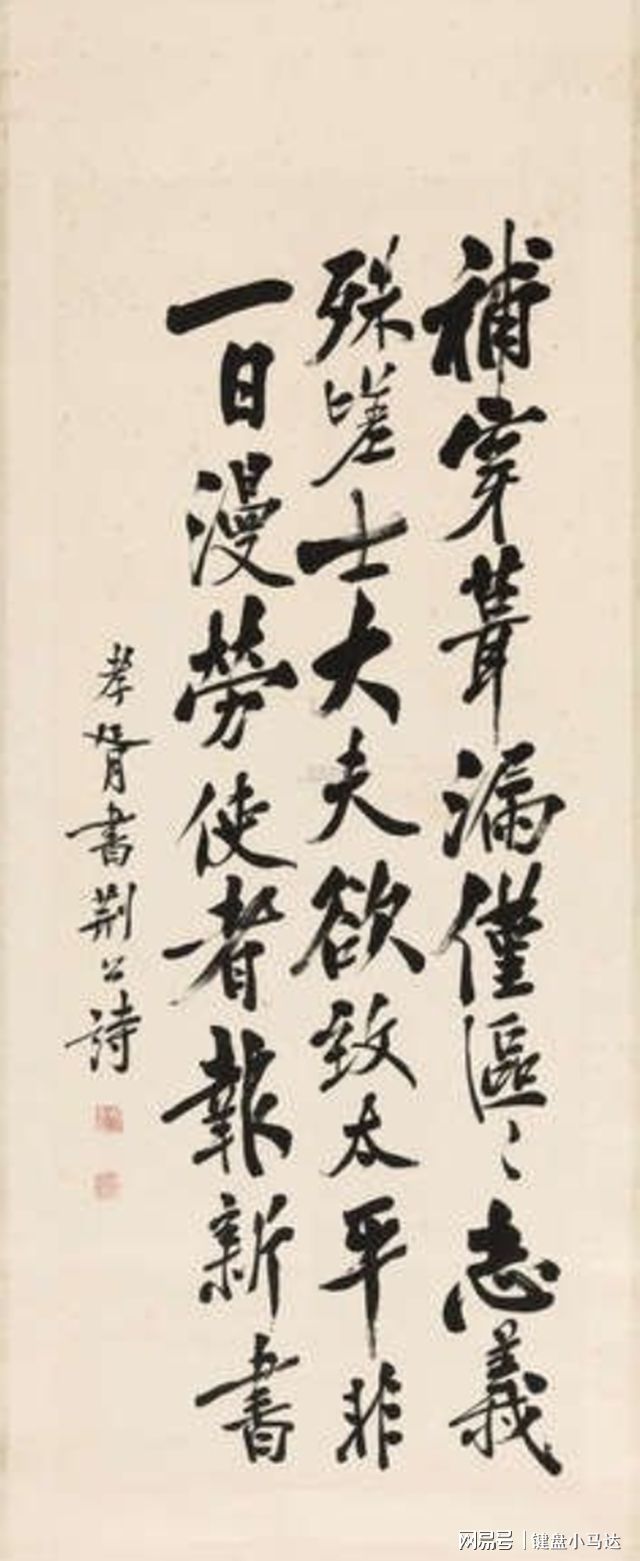 補穿葺漏僅區〻志義
殊嗟士大夫欲致太平非
一日漫勞使者報新書
孝胥書荆公詩
网易号 | 键盘小马达